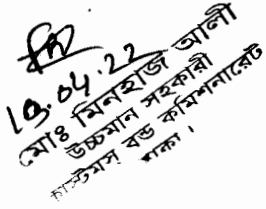 ১৩.০৪.২২
মোঃ মিনহাজ আলী
উচ্চমান সহকারী
কাস্টমস্ বন্ড কমিশনারেট
ঢাকা।